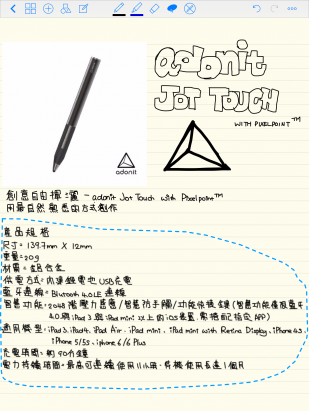 adonit
JOT TOUCH
WITH PIXELPOINT™
adonit
創意自由揮灑 - adonit Jot Touch with Pixelpoint™
用最自然熟悉的方式創作
產品規格
尺寸: 139.7mm X 12mm
重量: 20g
材質: 鋁合金
供電方式: 內建鋰電池 USB充電
藍牙連線: Bluetooth 4.0LE 連線
智慧功能: 2048 階壓力感應/智慧防手觸/功能快捷鍵 (智慧功能僅限藍牙
4.0 iPad 3 iPad mini 以上的 iOS裝置, 需搭配指定 APP)
適用機型: iPad 3, iPad4, iPad Air, iPad mini, iPad mini with Retina Display, iPhone 4s,
iPhone 5/5s, iphone 6/6 Plus
充電時間: 約 90分鐘
電力持續時間: 最高可連續使用11小時, 待機使用長達1個月